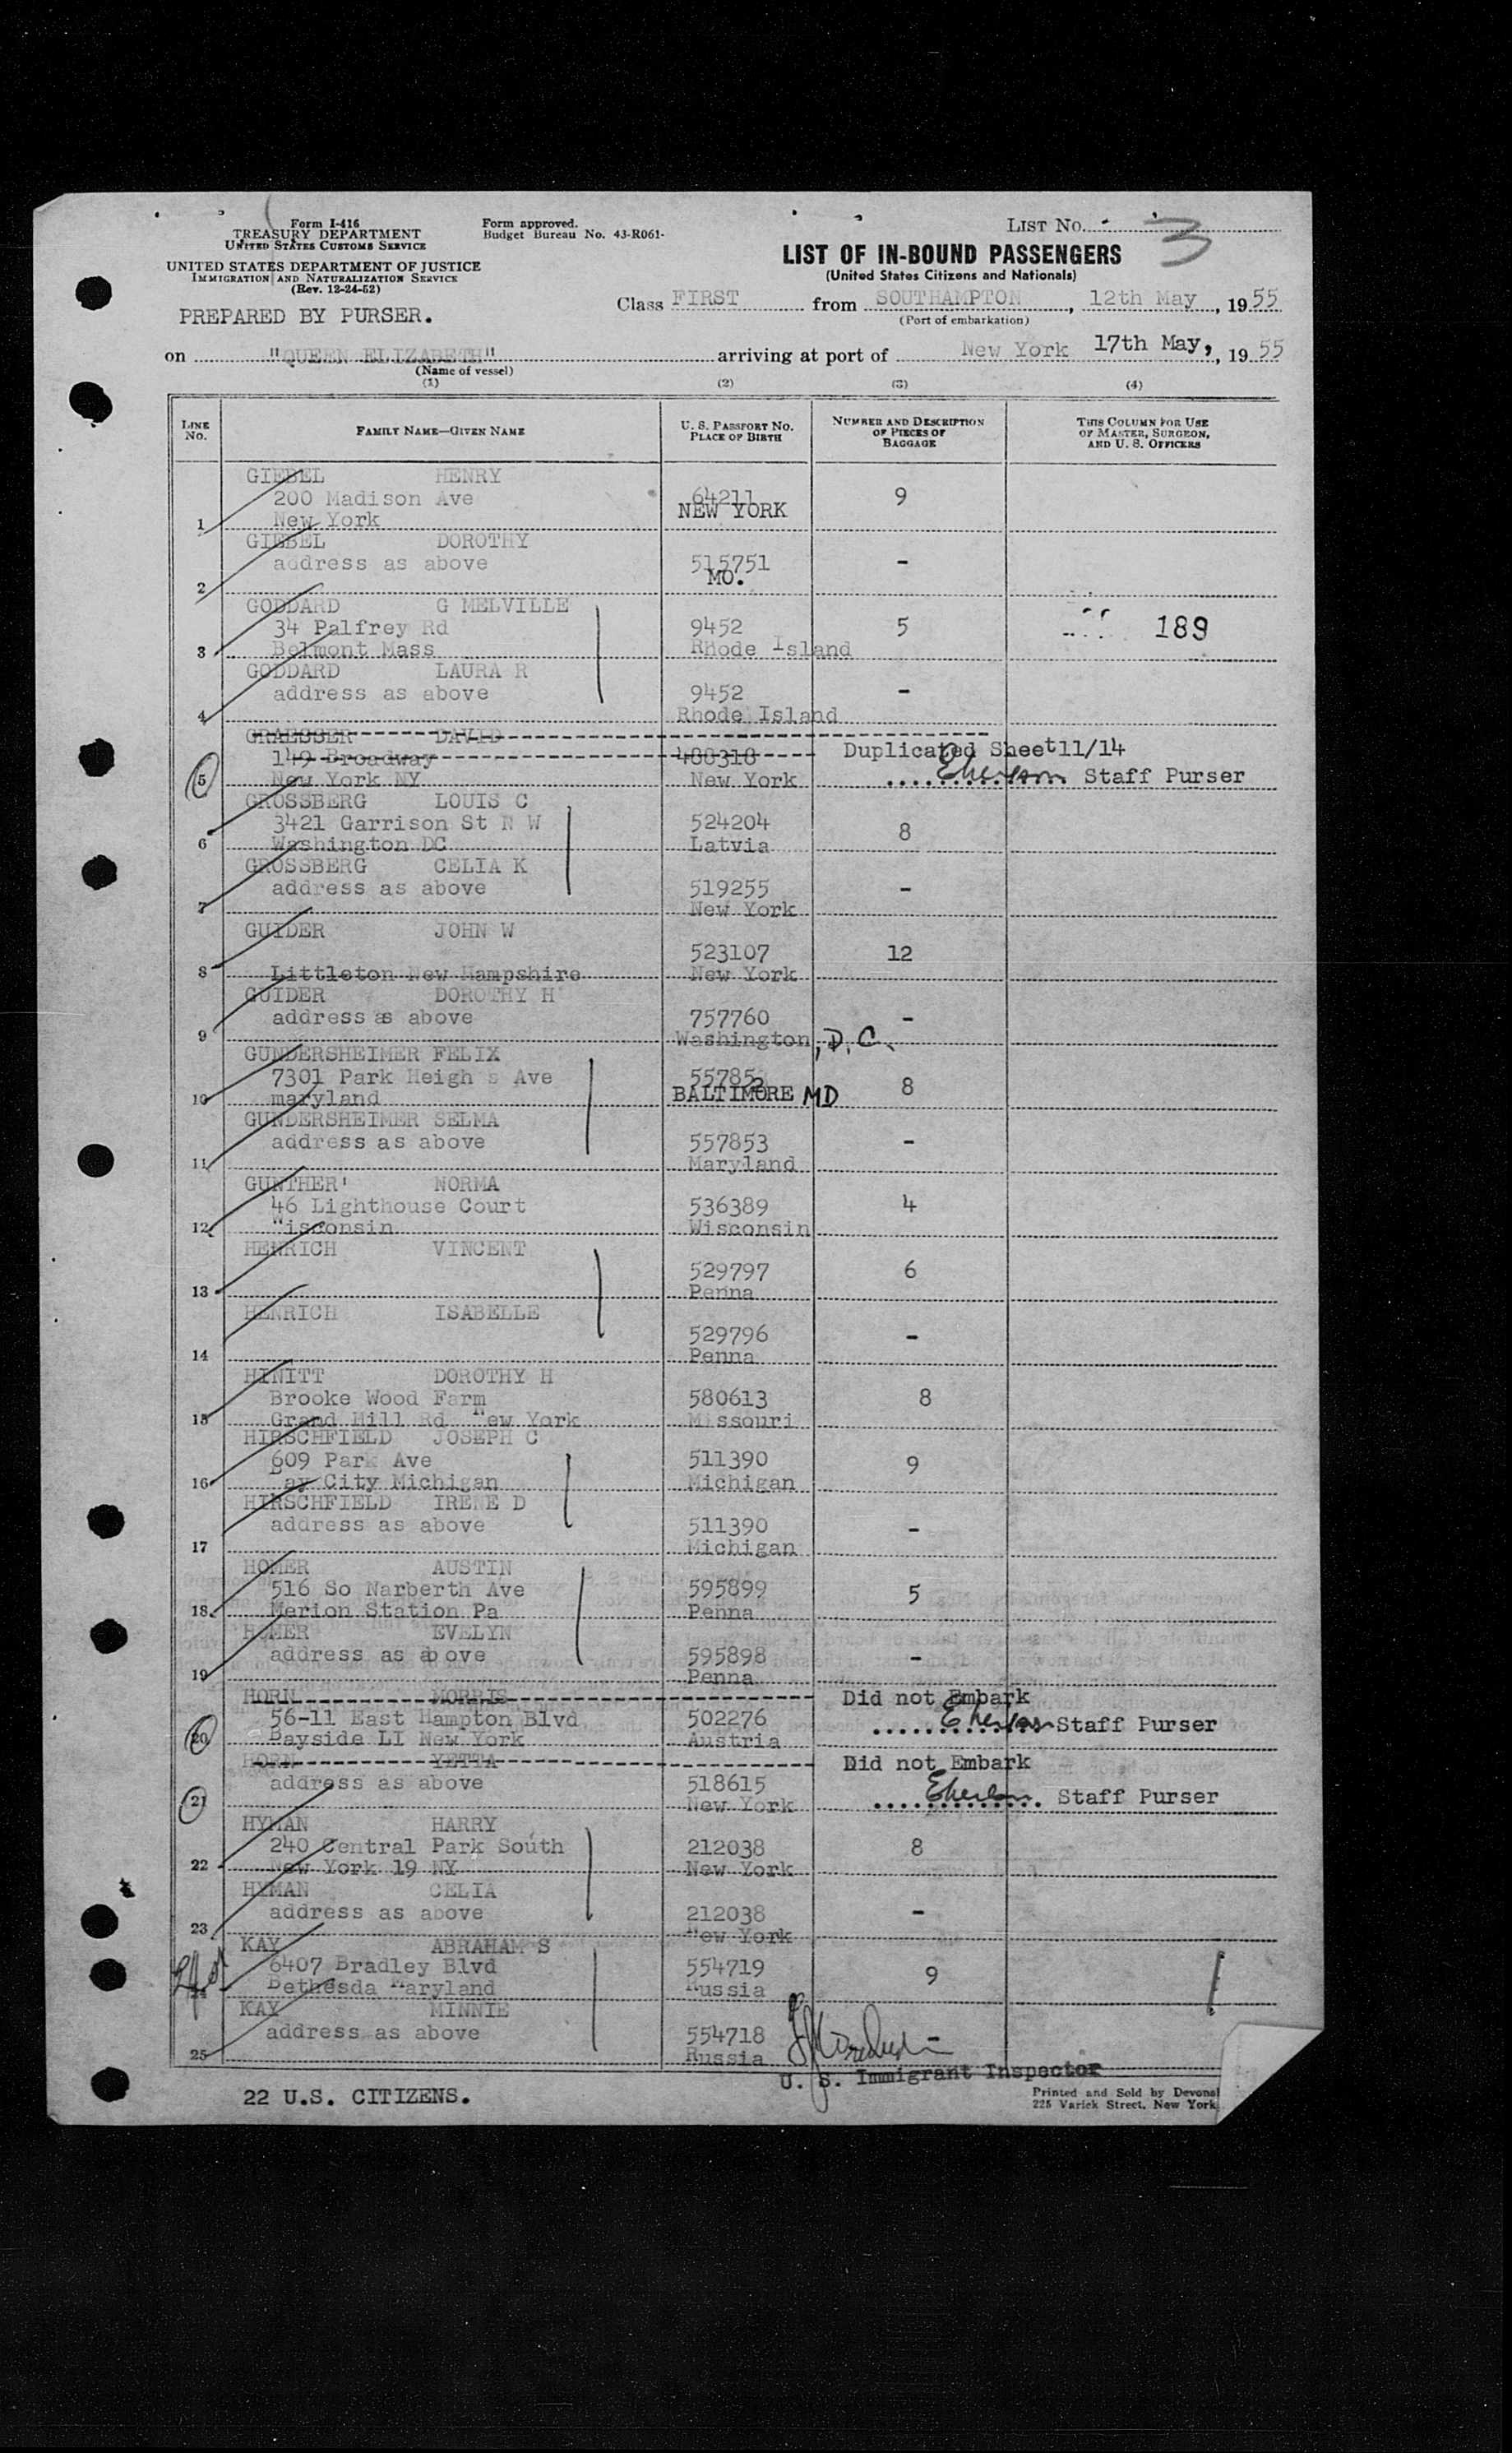 Form I-416
TREASURY DEPARTMENT
UNITED STATES CUSTOMS SERVICE
UNITED STATES DEPARTMENT OF JUSTICE
IMMIGRATION AND NATURALIZATION SERVICE
(Rev. 12-24-52)
PREPARED BY PURSER.
Form approved.
Budget Bureau No. 43-R061-
LIST NO. 3
LIST OF IN-BOUND PASSENGERS
(United States Citizens and Nationals)
Class FIRST from SOUTHAMPTON, 12th May, 1955
(Port of embarkation)
on "QUEEN ELIZABETH" arriving at port of New York 17th May, 1955
(Name of vessel)
(1) (2) (3) (4)
LINE NO. FAMILY NAME—GIVEN NAME U. S. PASSPORT NO. PLACE OF BIRTH NUMBER AND DESCRIPTION OF PIECES OF BAGGAGE THIS COLUMN FOR USE OF MASTER, SURGEON, AND U. S. OFFICERS
GIEBEL HENRY
200 Madison Ave 64211 9
1 New York NEW YORK
GIEBEL DOROTHY
address as above 515751 -
2 MO.
GODDARD G MELVILLE
34 Palfrey Rd 9452 5 189
3 Belmont Mass Rhode Island
GODDARD LAURA R
address as above 9452 -
4 Rhode Island
GRAESSER DAVID
149 Broadway 400310 Duplicated Sheet 11/14
5 New York NY New York Staff Purser
GROSSBERG LOUIS C
3421 Garrison St N W 524204 8
6 Washington DC Latvia
GROSSBERG CELIA K
address as above 519255 -
7 New York
GUIDER JOHN W
523107 12
8 Littleton New Hampshire New York
GUIDER DOROTHY H
address as above 757760 -
9 Washington, D.C.
GUNDERSHEIMER FELIX
7301 Park Heigh s Ave 557852 8
10 maryland BALTIMORE MD
GUNDERSHEIMER SELMA
address as above 557853 -
11 Maryland
GUNTHER' NORMA
46 Lighthouse Court 536389 4
12 "isconsin Wisconsin
HENRICH VINCENT
529797 6
13 Penna
HENRICH ISABELLE
529796 -
14 Penna
HINITT DOROTHY H
Brooke Wood Farm 580613 8
15 Grand Hill Rd New York Missouri
HIRSCHFIELD JOSEPH C
609 Park Ave 511390 9
16 Bay City Michigan Michigan
HIRSCHFIELD IRENE D
address as above 511390 -
17 Michigan
HOMER AUSTIN
516 So Narberth Ave 595899 5
18 Merion Station Pa Penna
HOMER EVELYN
address as above 595898 -
19 Penna
HORN MORRIS Did not Embark
56-11 East Hampton Blvd 502276 Staff Purser
20 Bayside LI New York Austria
HORN YETTA Did not Embark
address as above 518615
21 New York Staff Purser
HYMAN HARRY
240 Central Park South 212038 8
22 New York 19 NY New York
HYMAN CELIA
address as above 212038 -
23 New York
KAY ABRAHAM S
6407 Bradley Blvd 554719 9
24 Bethesda Maryland Russia
KAY MINNIE
address as above 554718 -
25 Russia
U. S. Immigrant Inspector
22 U.S. CITIZENS.
Printed and Sold by Devonal
225 Varick Street, New York